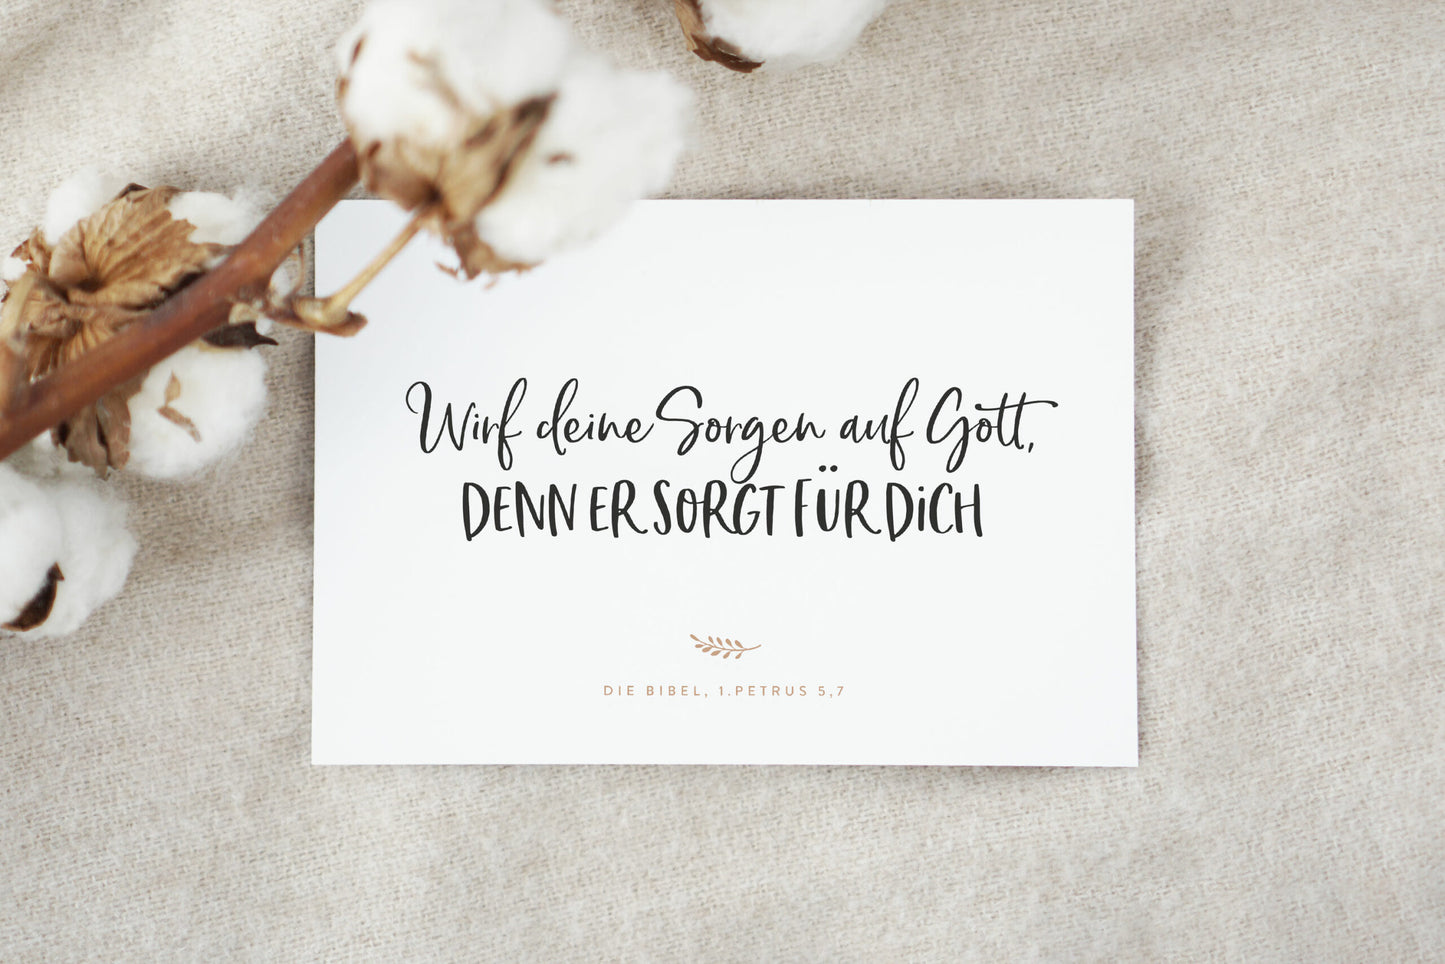 Wirf deine Sorgen auf Gott,
DENN ER SORGT FÜR DiCH
DIE BIBEL, 1.PETRUS 5,7